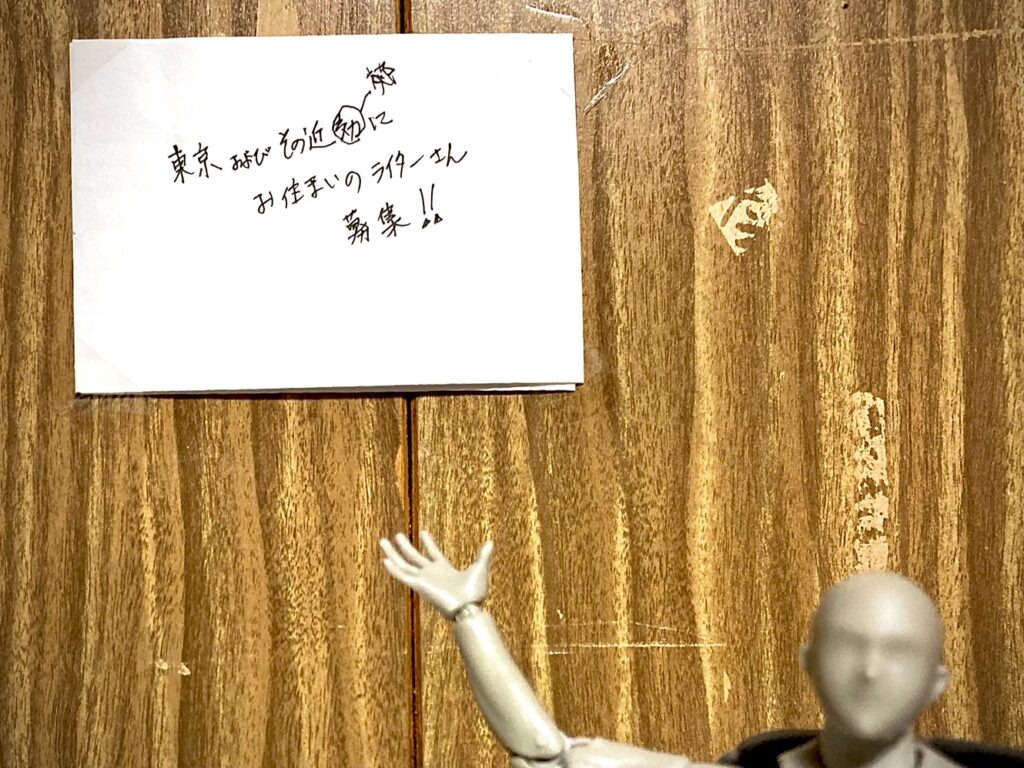 東京 および その近効に
お住まいの ライターさん
募集!!